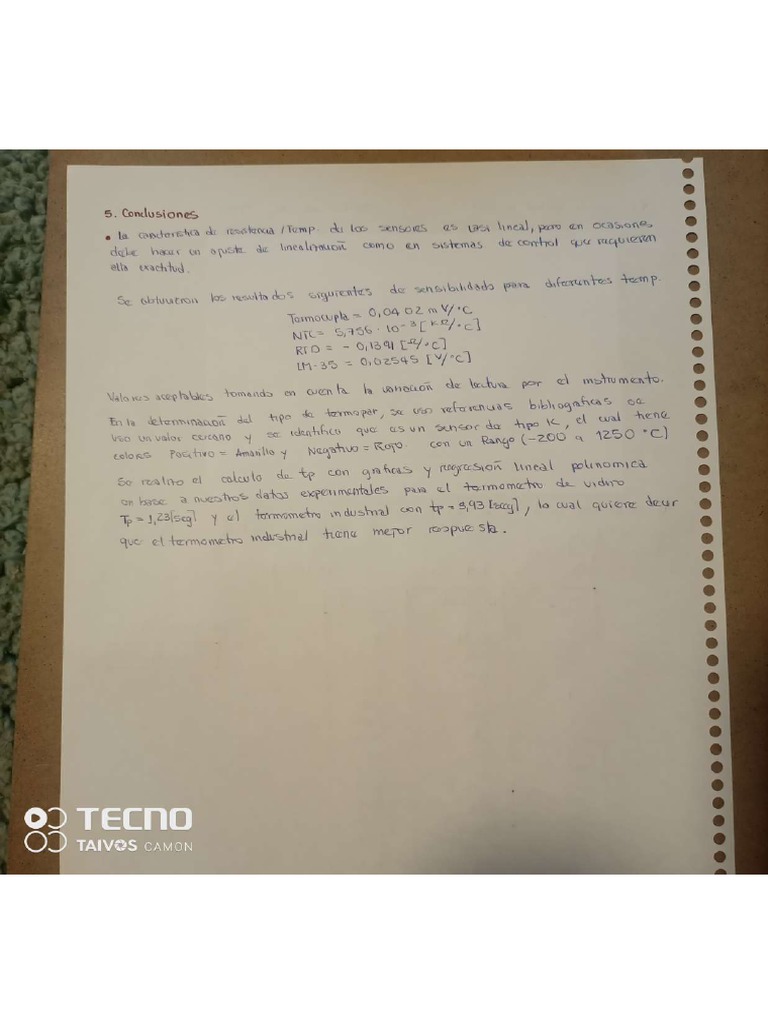 5. Conclusiones
• La caracteristica de resistencia / Temp. de los sensores es casi lineal, pero en ocasiones
debe hacer un ajuste de linealización como en sistemas de control que requieren
alta exactitud.
Se obtuvieron los resultados siguientes de sensibilidado para diferentes temp.
Termocupla = 0,0402 mV/°C
NTC = 5,756 · 10⁻³ [KΩ/°C]
RTD = - 0,1391 [Ω/°C]
LM-35 = 0,02545 [V/°C]
Valores aceptables tomando en cuenta la variación de lectura por el instrumento.
En la determinación del tipo de termopar, se uso referencias bibliograficas se
uso un valor cercano y se identifico que es un sensor de tipo K, el cual tiene
colores Positivo = Amarillo y Negativo = Rojo. con un Rango (-200 a 1250 °C)
Se realizo el calculo de tp con graficas y regresión lineal polinomica
en base a nuestros datos experimentales para el termometro de vidrio
Tp = 1,23[seg] y el termometro industrial con tp = 3,93 [seg], lo cual quiere decir
que el termometro industrial tiene mejor respuesta.
TECNO
TAIVOS CAMON